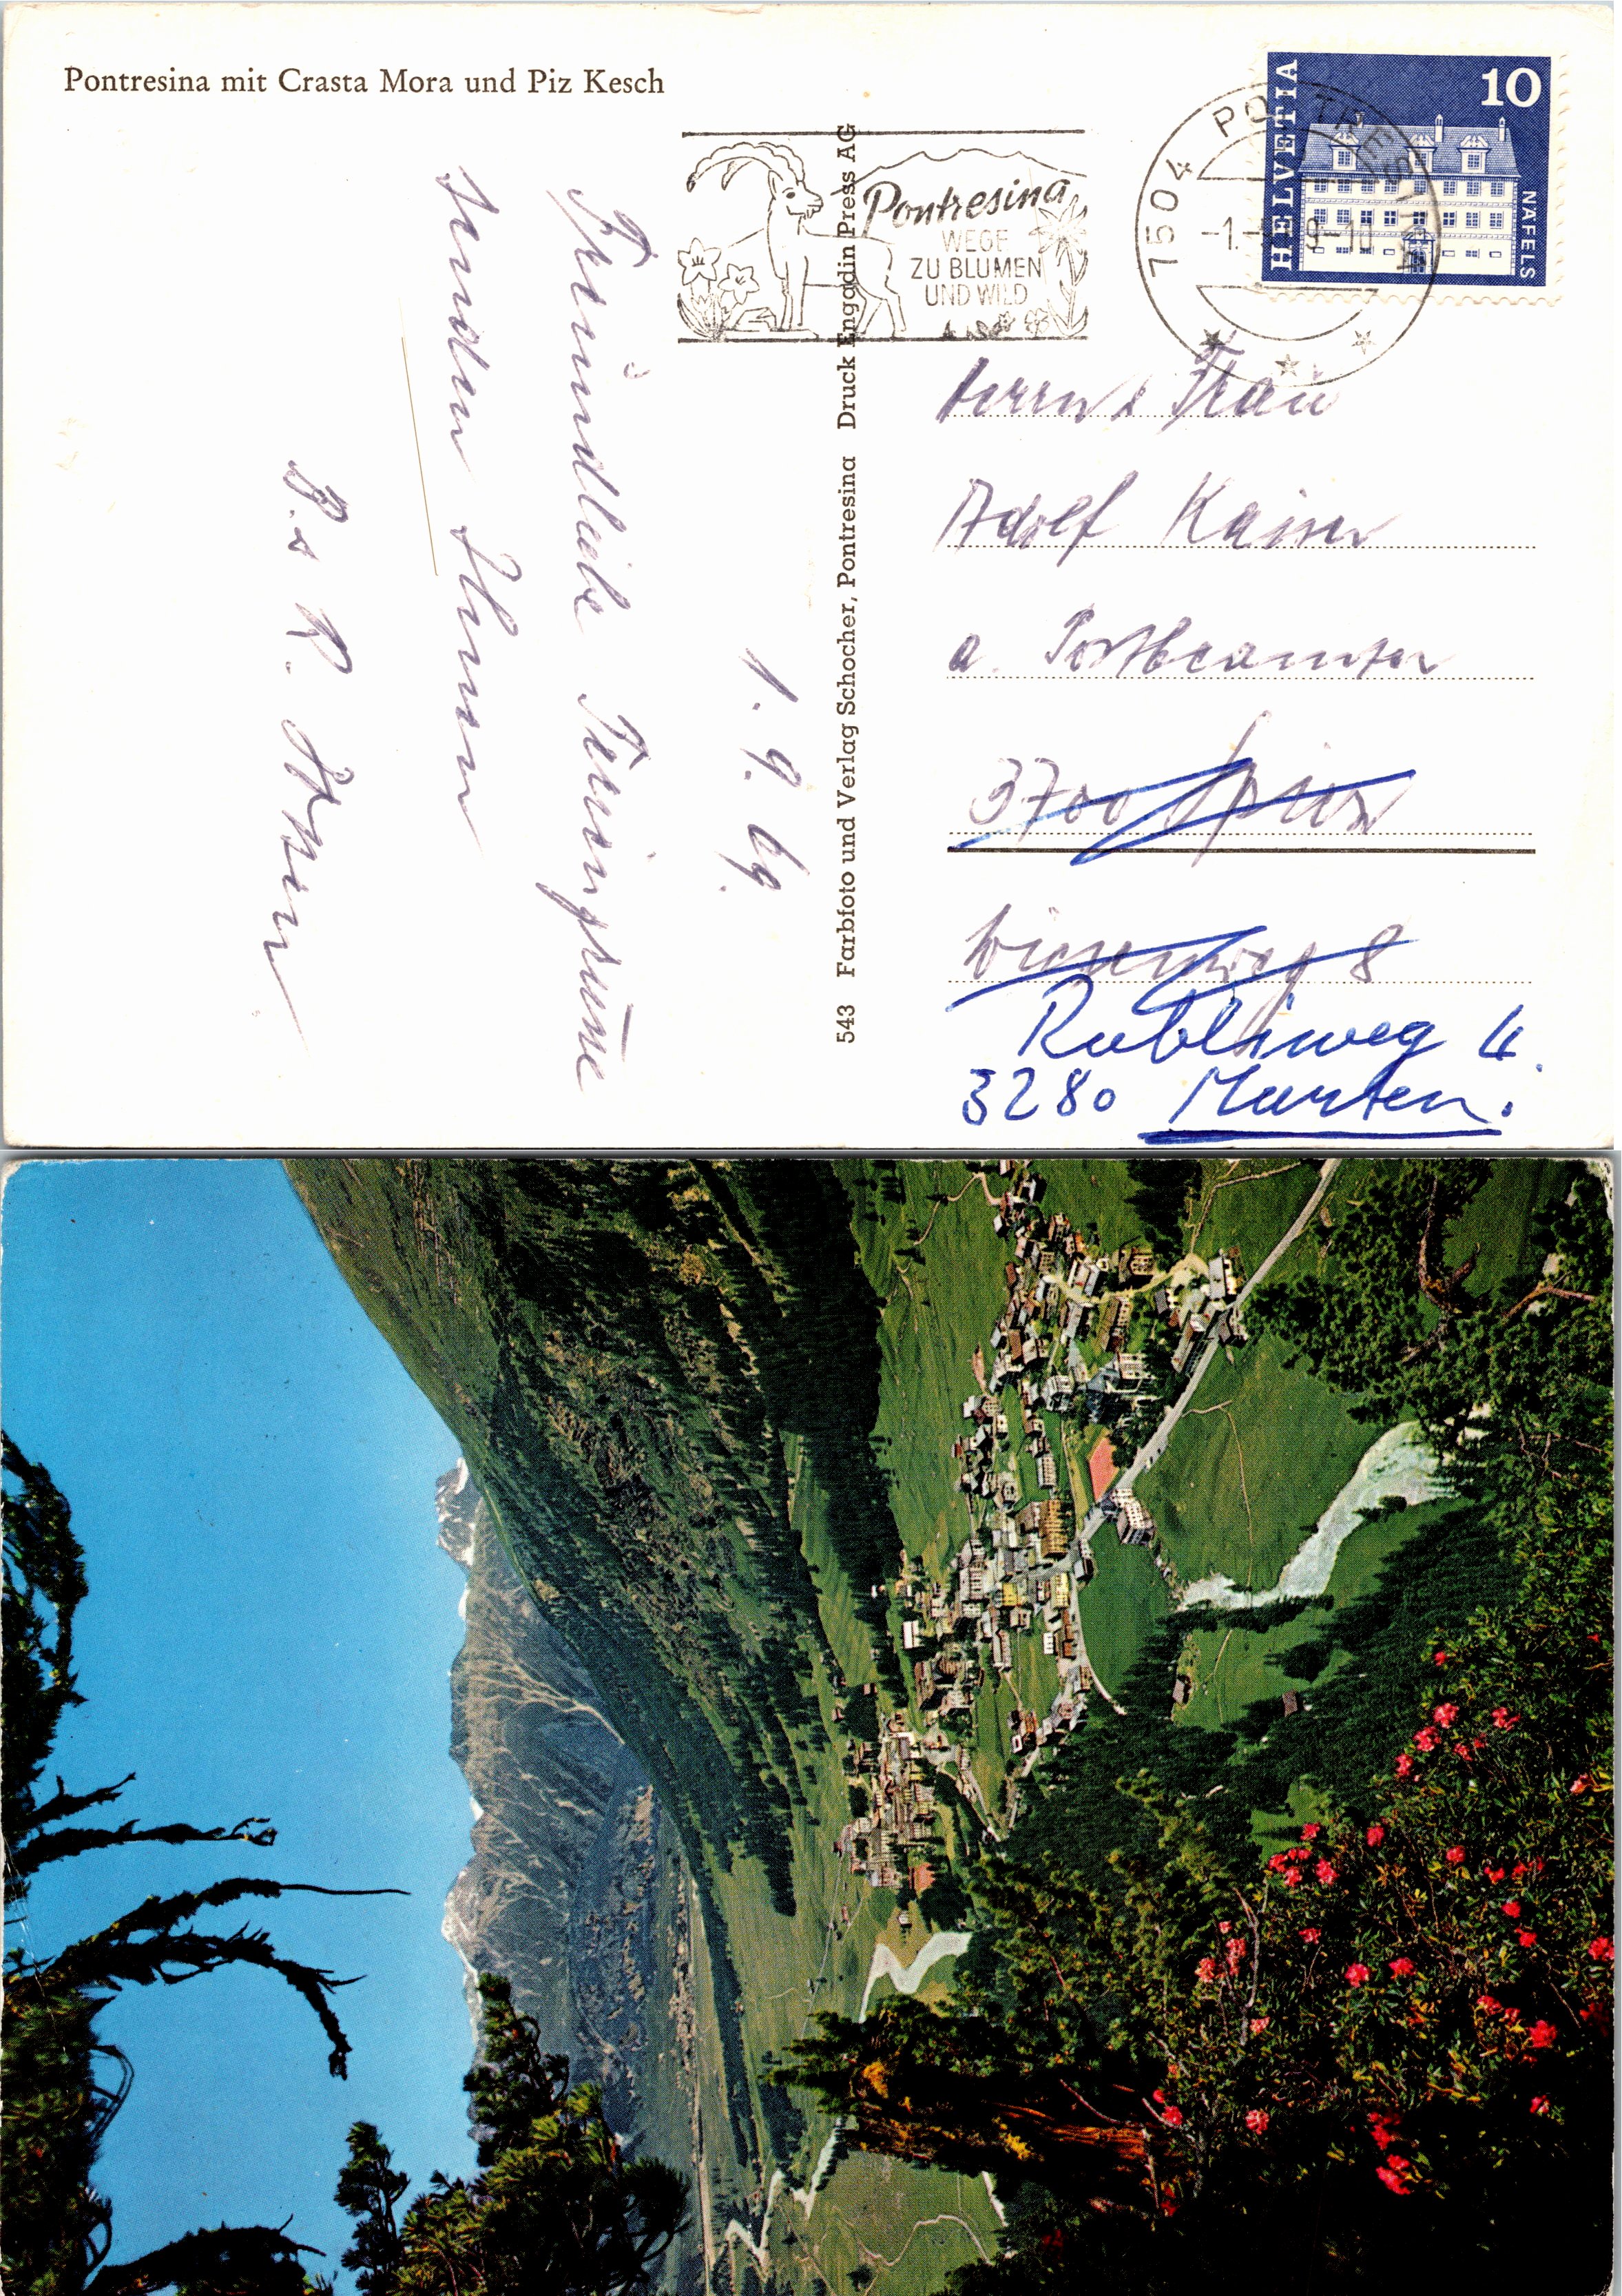 Pontresina mit Crasta Mora und Piz Kesch
Pontresina
WEGE
ZU BLUMEN
UND WILD
7504 PONTRESINA
-1.-9. 9-10
HELVETIA
10
NÄFELS
543 Farbfoto und Verlag Schocher, Pontresina Druck Engadin Press AG
1. 9. 69.
Freundliche Feriengrüsse
senden Ihnen
B. & R.
Herrn & Frau
Adolf Kaiser
a. Postbeamter
3700 Spiez
Wiesenweg 8
Rubliweg 4
3280 Murten.